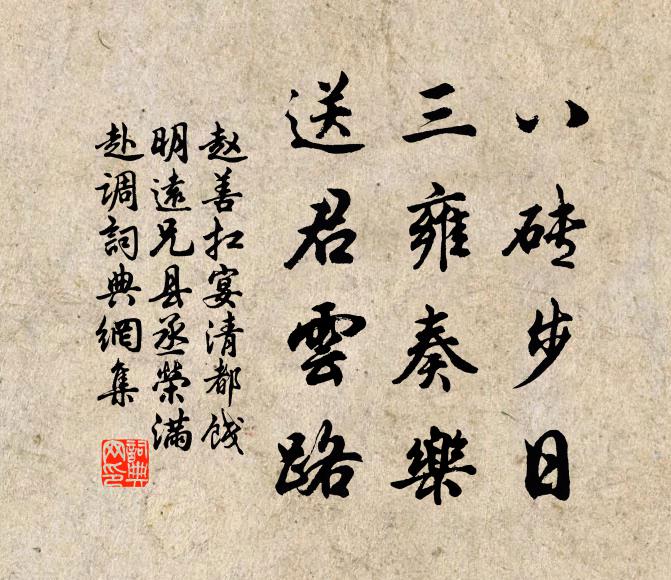 八砖步日
三雍奏樂
送君雲路
赵善扛宴清都饯
明遠兄县丞榮满
赴调詞典網集
詞典
网印